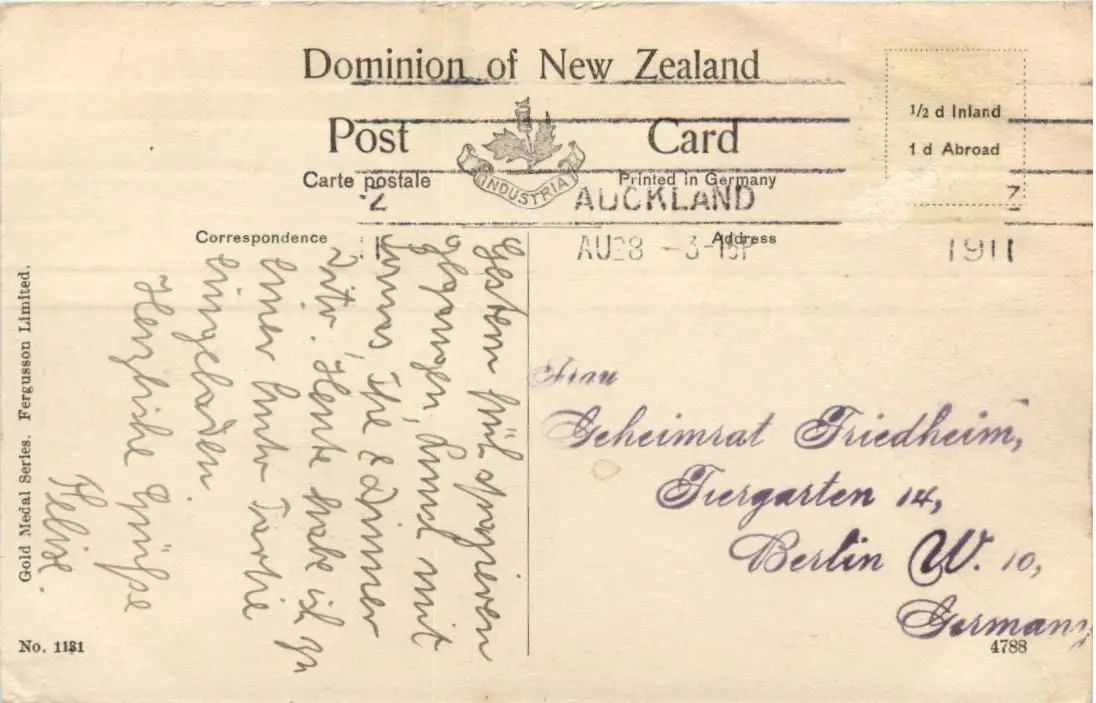 Dominion of New Zealand
Post Card
Carte postale
INDUSTRIA
Printed in Germany
1/2 d Inland
1 d Abroad
AUCKLAND
AU28 1911
Correspondence
Address
Gestern früh spazieren
gegangen, Lunch mit
The & Dinner
dito. Heute habe ich zu
einer Auto Partie
eingeladen.
Herzliche Grüße
Felix.
Frau
Geheimrat Friedheim,
Tiergarten 14,
Berlin W. 10,
Germany
Gold Medal Series. Fergusson Limited.
No. 1131
4788